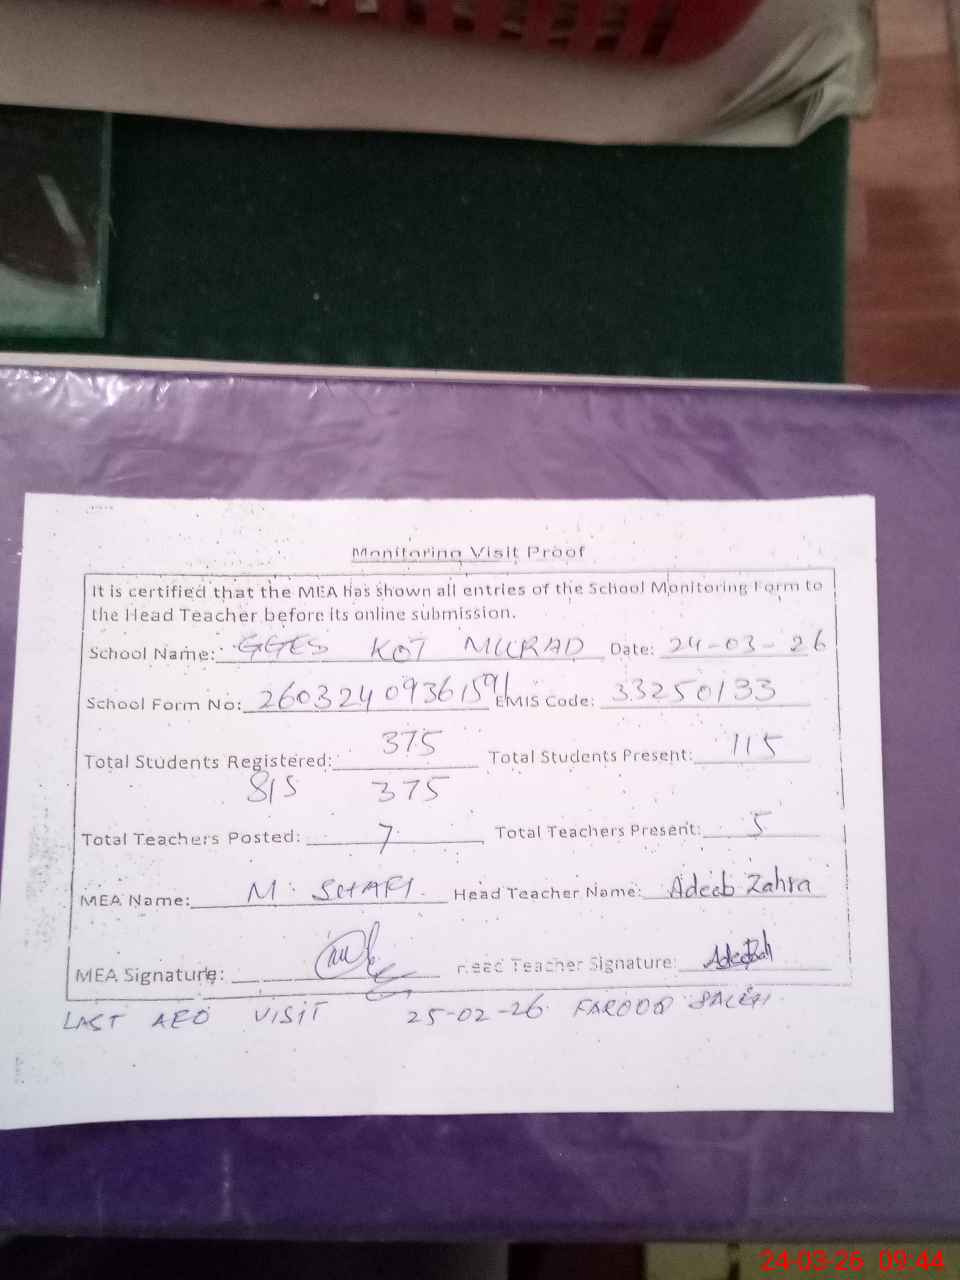 Monitoring Visit Proof
It is certified that the MEA has shown all entries of the School Monitoring Form to
the Head Teacher before its online submission.
School Name: GGES KOT MURAD Date: 24-03-26
School Form No: 26032409361591 EMIS Code: 33250133
Total Students Registered: 375 Total Students Present: 115
SIS 375
Total Teachers Posted: 7 Total Teachers Present: 5
MEA Name: M. SHAFI Head Teacher Name: Adeeb Zahra
MEA Signature: Head Teacher Signature:
LAST AEO VISIT 25-02-26 FAROOQ
24-03-26 09:44